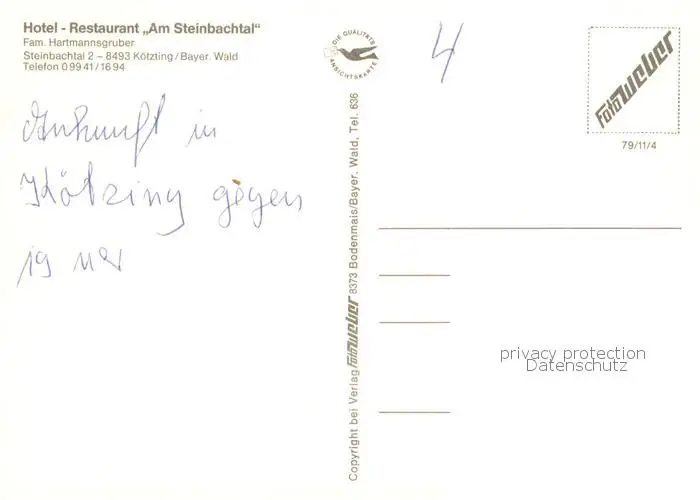 Hotel - Restaurant „Am Steinbachtal“
Fam. Hartmannsgruber
Steinbachtal 2 – 8493 Kötzting/Bayer. Wald
Telefon 0 99 41 / 16 94
Ankunft in
Kötzing gegen
19 Uhr
DIE QUALITÄTS
ANSICHTSKARTE
4
Foto Weber
79/11/4
Copyright bei Verlag Foto Weber 8373 Bodenmais/Bayer. Wald, Tel. 636
privacy protection
Datenschutz